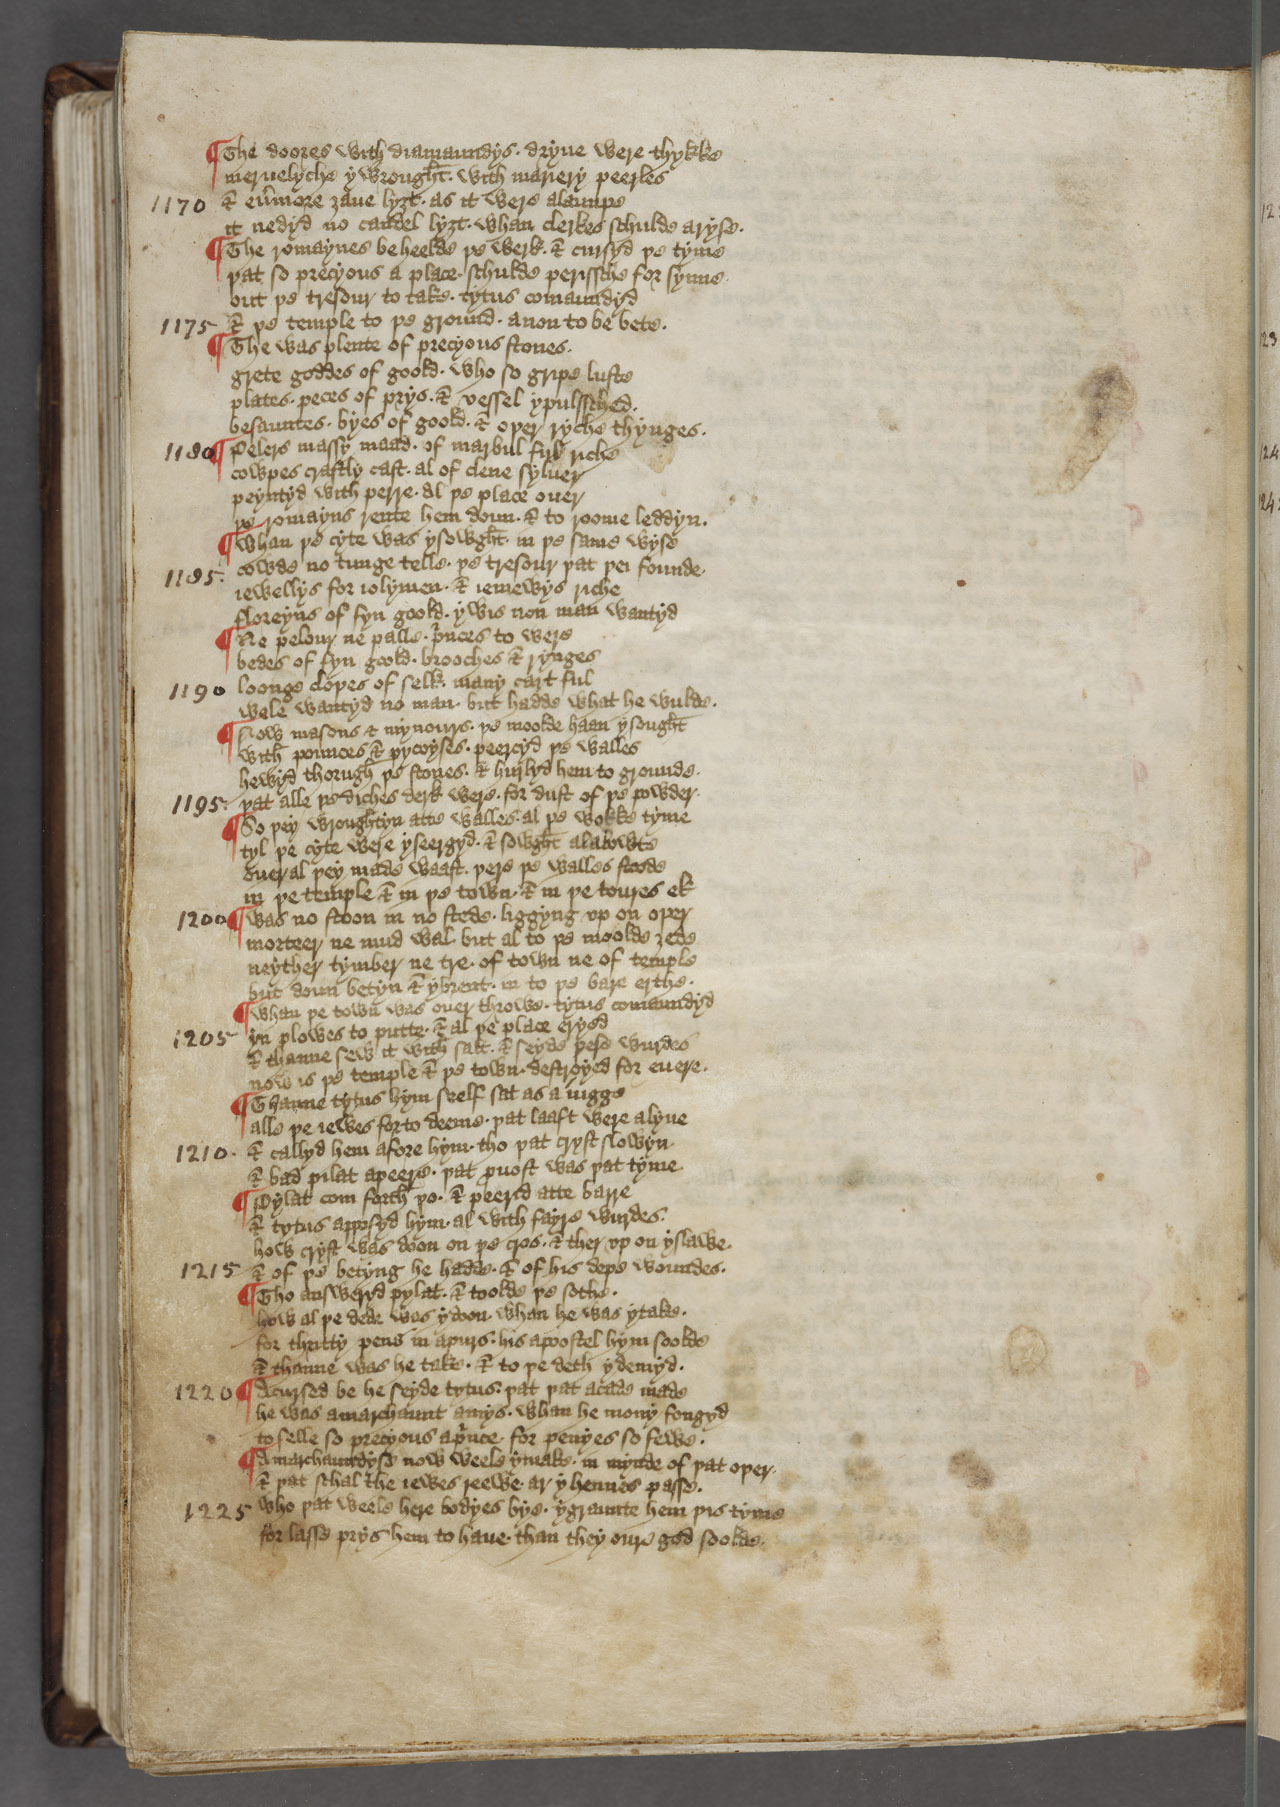 ¶ The doores with diamaundys · dryue were thykke
merueylyche ywrought · with mariery peerles
1170 & eu̅more ȝaue lyȝt · as it were alaumpe
it nedyd no candel lyȝt · whan clerkes schulde aryse ·
¶ The romaynes beheelde þe werk · & cursyd þe tyme
þat so precyous a place · schulde perissche for synne ·
out þe tresour to take · tytus comaundyd
1175 & þe temple to þe ground · anon to be bete ·
¶ The was plente of precyous stones ·
grete goddes of goold · who so gripe luste
plates · peces of prys · & vessel ypulssched ·
besauntes · byes of goold · & oþer ryche thynges ·
1180 ¶ Pelers massy maad · of marbul ful riche
cowpes craftly cast · al of clene syluer
peyntyd with perre · al þe place ouer
þe romayns rente hem doun · & to roome leddyn ·
¶ Whan þe cyte was ysowght · in þe same wyse
1185 · cowde no tunge telle · þe tresour þat þei founde ·
iewellys for iolymen · & iemewys riche
floreyns of fyn goold · ywis non man wantyd
¶ Ne pelour ne palle · p̉nces to were
bedes of fyn goold · brooches & rynges
1190 loonge cloþes of selk · many cart ful
wele wantyd no man · but hadde what he wulde ·
¶ Now masons & mynours · þe moolde haan ysought
with pounces & pycoyses · peercyd þe walles
hewyd thorugh þe stones · & hurlyd hem to grounde ·
1195 · þat alle þe diches derk were · for dust of þe powder ·
¶ So þey wroughtyn atte walles · al þe wokke tyme
tyl þe cyte were yseergyd · & sowght alabowte
oueral þey made waast · þere þe walles stoode
in þe temple & in þe town · & in þe toures ek
1200 ¶ Was no stoon in no stede · liggyng vp on oþer
morteer ne mud wal · but al to þe moolde ȝede
neyther tymber ne tre · of town ne of temple
but doun betyn & ybrent · in to þe bare erthe ·
¶ Whan þe town was ouer throwe · tytus comaundyd
1205 yn plowes to putte · & al þe place eryed
& thanne sew it with salt · & seyde þese wurdes
now is þe temple & þe town · destroyed for euere ·
¶ Thanne tytus hym seelf sat as a iugge
alle þe iewes forto deeme · þat laaft were alyue
1210 · & callyd hem afore hym · tho þat cryst slowyn ·
& bad pilat apeere · þat puost was þat tyme
¶ Pylat com forth þo · & peerid atte barre
& tytus apposyd hym · al with fayre wurdes ·
how cryst was doon on þe cros · & ther vp on yslawe ·
1215 & of þe betyng he hadde · & of his depe woundes ·
¶ Tho answeryd pylat · & toolde þe sothe ·
how al þe dede was ydoon · whan he was ytake ·
for thritty pens in apurs · his apoostel hym soolde
& thanne was he take · & to þe deth ydemyd ·
1220 ¶ Acursed be he seyde tytus · þat þat acate made
he was amarchaunt amys · whan he mony fongyd
to selle so precyous ap̉nce · for penyes so fewe ·
¶ A marchaundyse now weele ymake · in mynde of þat oþer ·
& þat schal the iewes reewe · ar y hennes passe ·
1225 who þat weele here bodyes bye · ygraunte hem þis tyme
for lasse prys hem to haue · than they oure god soolde ·